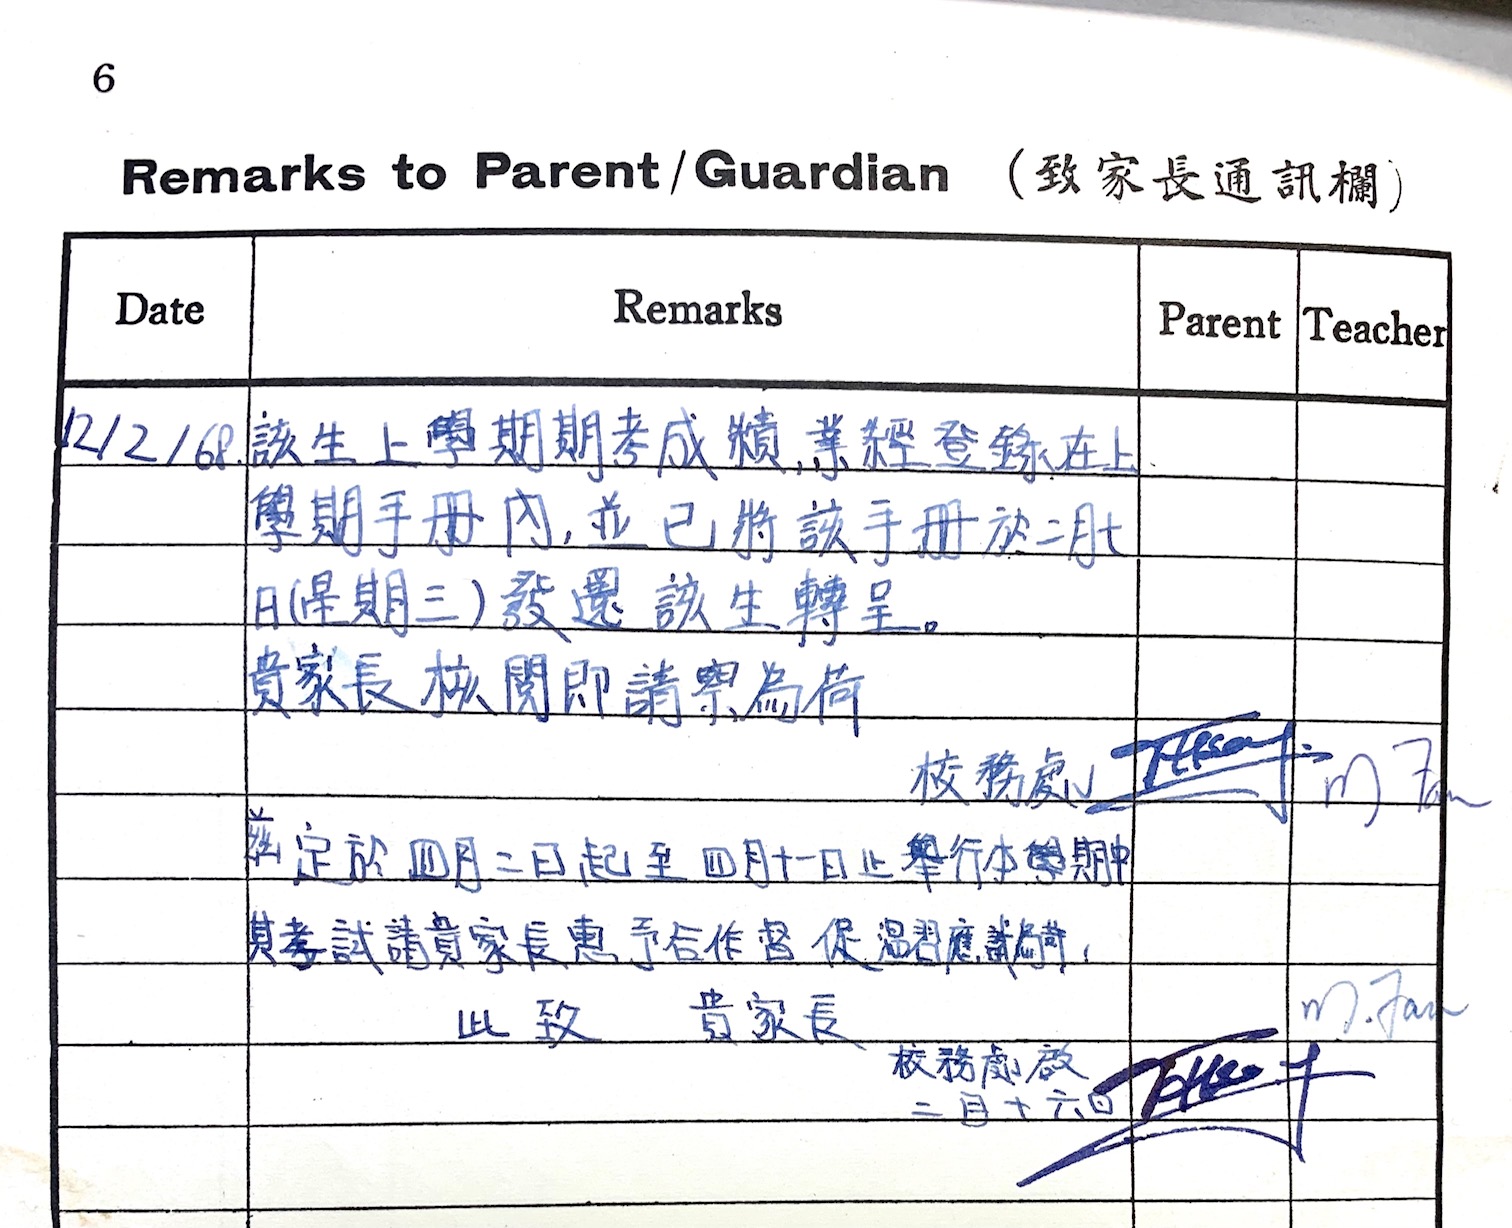 6
Remarks to Parent/Guardian (致家長通訊欄)
Date Remarks Parent Teacher
12/2/68. 該生上學期期考成績,業經登錄在上
學期手冊內,並已將該手冊於二月七
日(星期三)發還該生轉呈。
貴家長核閱即請察為荷
校務處 M Fan
茲定於四月二日起至四月十一日止舉行本學期中
期考試請貴家長惠予合作督促溫習應試為荷,
此致 貴家長
M. Fan
校務處啟
二月十六日